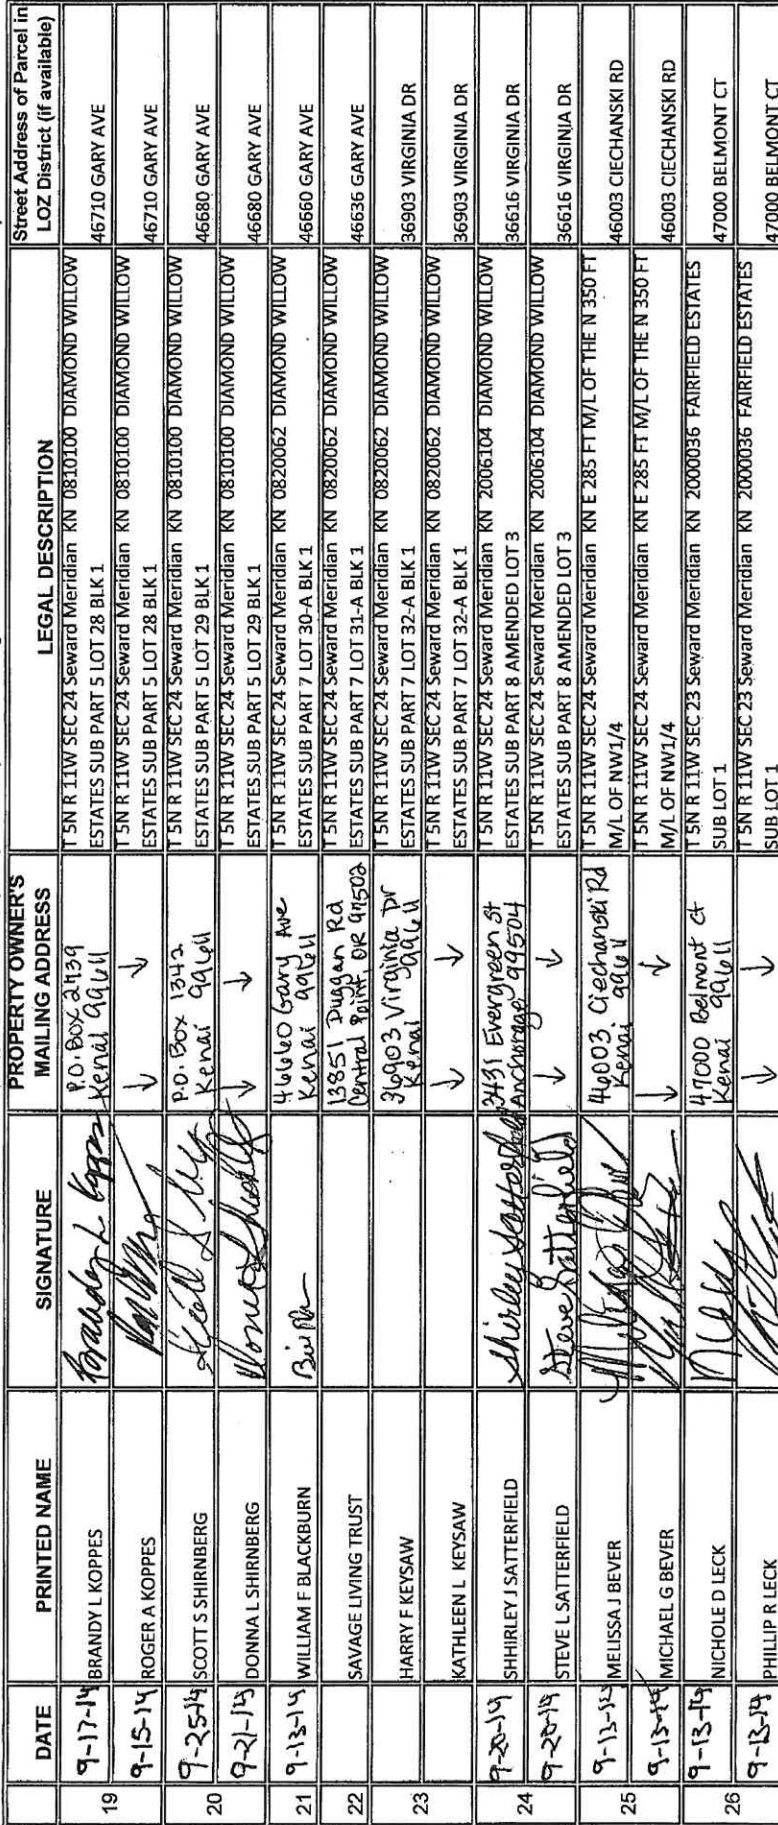 DATE PRINTED NAME SIGNATURE PROPERTY OWNER'S MAILING ADDRESS LEGAL DESCRIPTION Street Address of Parcel in LOZ District (if available)
19
9-17-14 BRANDY L KOPPES Brandy L Koppes P.O. Box 2439 Kenai 99611 T 5N R 11W SEC 24 Seward Meridian KN 0810100 DIAMOND WILLOW 46710 GARY AVE
ESTATES SUB PART 5 LOT 28 BLK 1
9-15-14 ROGER A KOPPES ↓ ↓ T 5N R 11W SEC 24 Seward Meridian KN 0810100 DIAMOND WILLOW 46710 GARY AVE
ESTATES SUB PART 5 LOT 28 BLK 1
20
9-25-14 SCOTT S SHIRNBERG P.O. Box 1342 Kenai 99611 T 5N R 11W SEC 24 Seward Meridian KN 0810100 DIAMOND WILLOW 46680 GARY AVE
ESTATES SUB PART 5 LOT 29 BLK 1
9-21-14 DONNA L SHIRNBERG ↓ ↓ T 5N R 11W SEC 24 Seward Meridian KN 0810100 DIAMOND WILLOW 46680 GARY AVE
ESTATES SUB PART 5 LOT 29 BLK 1
21
9-13-14 WILLIAM F BLACKBURN 46660 Gary Ave Kenai 99611 T 5N R 11W SEC 24 Seward Meridian KN 0820062 DIAMOND WILLOW 46660 GARY AVE
ESTATES SUB PART 7 LOT 30-A BLK 1
22
SAVAGE LIVING TRUST 13851 Duggan Rd Central Point, OR 97502 T 5N R 11W SEC 24 Seward Meridian KN 0820062 DIAMOND WILLOW 46636 GARY AVE
ESTATES SUB PART 7 LOT 31-A BLK 1
23
HARRY F KEYSAW 36903 Virginia Dr Kenai 99611 T 5N R 11W SEC 24 Seward Meridian KN 0820062 DIAMOND WILLOW 36903 VIRGINIA DR
ESTATES SUB PART 7 LOT 32-A BLK 1
KATHLEEN L KEYSAW ↓ ↓ T 5N R 11W SEC 24 Seward Meridian KN 0820062 DIAMOND WILLOW 36903 VIRGINIA DR
ESTATES SUB PART 7 LOT 32-A BLK 1
24
9-20-14 SHHIRLEY J SATTERFIELD Shirley Satterfield 3431 Evergreen St Anchorage 99504 T 5N R 11W SEC 24 Seward Meridian KN 2006104 DIAMOND WILLOW 36616 VIRGINIA DR
ESTATES SUB PART 8 AMENDED LOT 3
9-20-14 STEVE L SATTERFIELD Steve Satterfield ↓ ↓ T 5N R 11W SEC 24 Seward Meridian KN 2006104 DIAMOND WILLOW 36616 VIRGINIA DR
ESTATES SUB PART 8 AMENDED LOT 3
25
9-13-14 MELISSA J BEVER 46003 Ciechanski Rd Kenai 99611 T 5N R 11W SEC 24 Seward Meridian KN E 285 FT M/L OF THE N 350 FT 46003 CIECHANSKI RD
M/L OF NW1/4
9-13-14 MICHAEL G BEVER ↓ ↓ T 5N R 11W SEC 24 Seward Meridian KN E 285 FT M/L OF THE N 350 FT 46003 CIECHANSKI RD
M/L OF NW1/4
26
9-13-14 NICHOLE D LECK 47000 Belmont Ct Kenai 99611 T 5N R 11W SEC 23 Seward Meridian KN 2000036 FAIRFIELD ESTATES 47000 BELMONT CT
SUB LOT 1
9-13-14 PHILLIP R LECK ↓ ↓ T 5N R 11W SEC 23 Seward Meridian KN 2000036 FAIRFIELD ESTATES 47000 BELMONT CT
SUB LOT 1